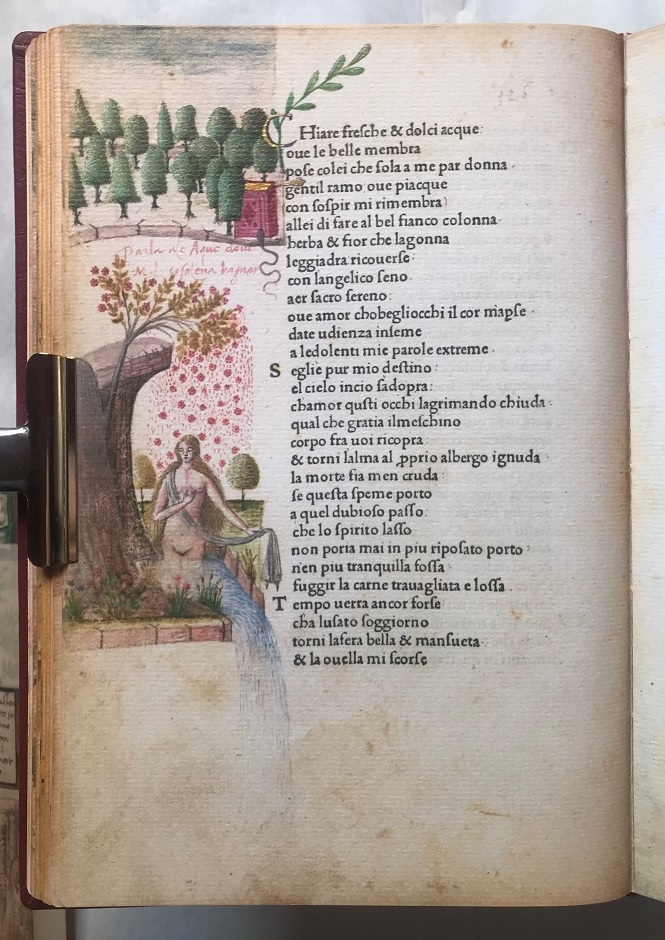 CHiare fresche & dolci acque
oue le belle membra
pose colei che sola a me par donna.
gentil ramo oue piacque
con sospir mi rimembra)
allei di fare al bel fianco colonna.
herba & fior che lagonna
leggiadra ricouerse:
con langelico seno.
aer sacro sereno:
oue amor chobegliocchi il cor màpse.
date udienza inseme
a ledolenti mie parole extreme.
Seglie pur mio destino:
el cielo incio sadopra:
chamor qusti occhi lagrimando chiuda.
qual che gratia ilmeschino
corpo fra uoi ricopra
& torni lalma al ꝓprio albergo ignuda.
la morte fia men cruda:
se questa speme porto
a quel dubioso passo:
che lo spirito lasso
non poria mai in piu riposato porto:
nen piu tranquilla fossa
fuggir la carne trauagliata e lossa.
Tempo uerra ancor forse
cha lusato soggiorno
torni lafera bella & mansueta.
& la ouella mi scorse